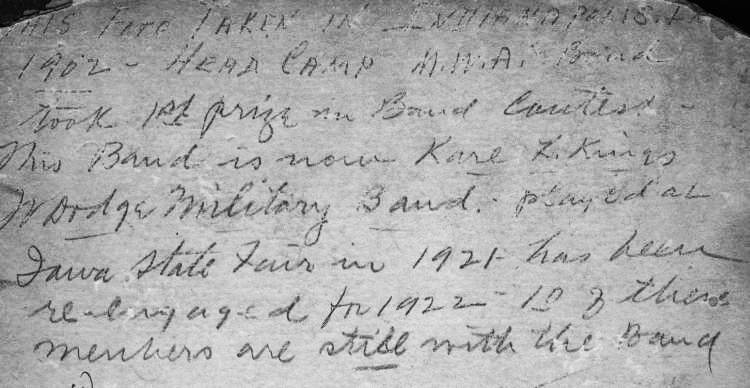 THIS Foto TAKEN IN INDIANAPOLIS. IN
1902 - HEAD CAMP M.W.A. Band
took 1st prize in Band Contest -
This Band is now Karl L. Kings
Ft Dodge Military Band. - played at
Iowa State Fair in 1921 - has been
re-engaged for 1922 - 10 of these
members are still with the Band